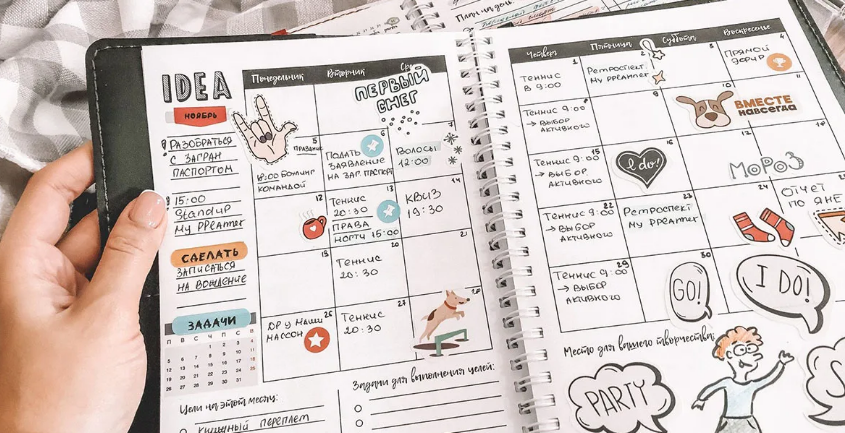 План на год:
IDEA
НОЯБРЬ
РАЗОБРАТЬСЯ
С ЗАГРАН
ПАСПОРТОМ
15:00
StandUp
My PPeamer
СДЕЛАТЬ
ЗАПИСАТЬСЯ
НА ВОЖДЕНИЕ
ЗАДАЧИ
Понедельник
Вторник
ПЕРВЫЙ
СНЕГ
5
6
7
8:00 БОУЛИНГ
КОМАНДОЙ
ПОДАТЬ
ЗАЯВЛЕНИЕ
НА ЗАГ. ПАСПОРТ
ВОЛОСЫ
12:00
12
13
14
ТЕННИС
20:30
ПРАВА
НОГТИ 15:00
КВИЗ
19:30
19
20
21
ТЕННИС
20:30
26
27
28
ДР У НАШИ
МАССОН
ТЕННИС
20:30
Цели на этот месяц:
КНИЖНЫЙ ПЕРЕПЛЕТ
Задачи для выполнения целей:
Четверг
Пятница
Суббота
Воскресенье
1
2
3
4
ТЕННИС
В 9:00
РЕТРОСПЕКТ.
My PPeamer
ПРЯМОЙ
ЭФИР
8
9
10
ТЕННИС 9:00
→ ВЫБОР
АКТИВНОГО
ВМЕСТЕ
НАВСЕГДА
15
16
17
18
ТЕННИС 9:00
→ ВЫБОР
АКТИВНОГО
I do!
МОРОЗ
22
23
24
ТЕННИС 9:00
→ ВЫБОР
АКТИВНОГО
РЕТРОСПЕКТ
My PPeamer
ОТЧЕТ
ПО ЯНЕ
29
30
ТЕННИС 9:00
→ ВЫБОР
АКТИВНОГО
GO!
I DO!
Место для вашего творчества:
PARTY